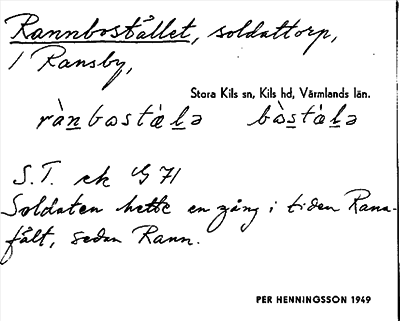 Rannbostället, soldattorp,
/ Ransby,
Stora Kils sn, Kils hd, Värmlands län.
rànbostälə bòstälə
S.T. ek G 71
Soldaten hette en gång i tiden Rann-
fält, sedan Rann.
PER HENNINGSSON 1949